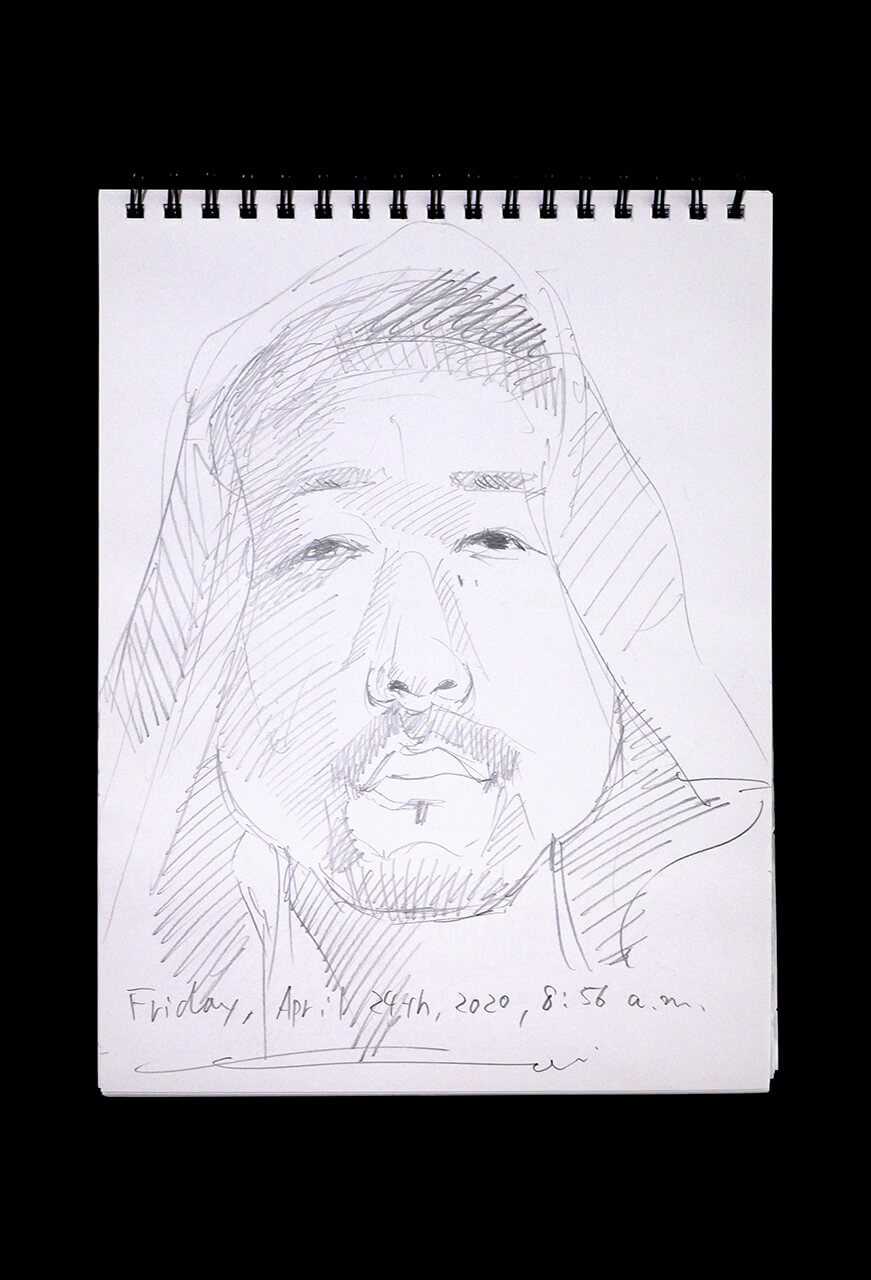 Friday, April 24th, 2020, 8:56 a.m.